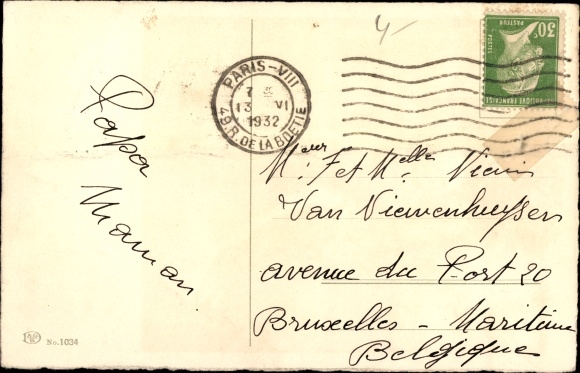 Papa
Maman
4-
PARIS-VIII
7
13 VI
1932
49.R. DE LA BOETIE
30c
PASTEUR
POSTES
REPUBLIQUE FRANCAISE
Mr F et Melle
Van Nieuwenhuysen
avenue du Port 20
Bruxelles - Maritime
Belgique
No. 1034